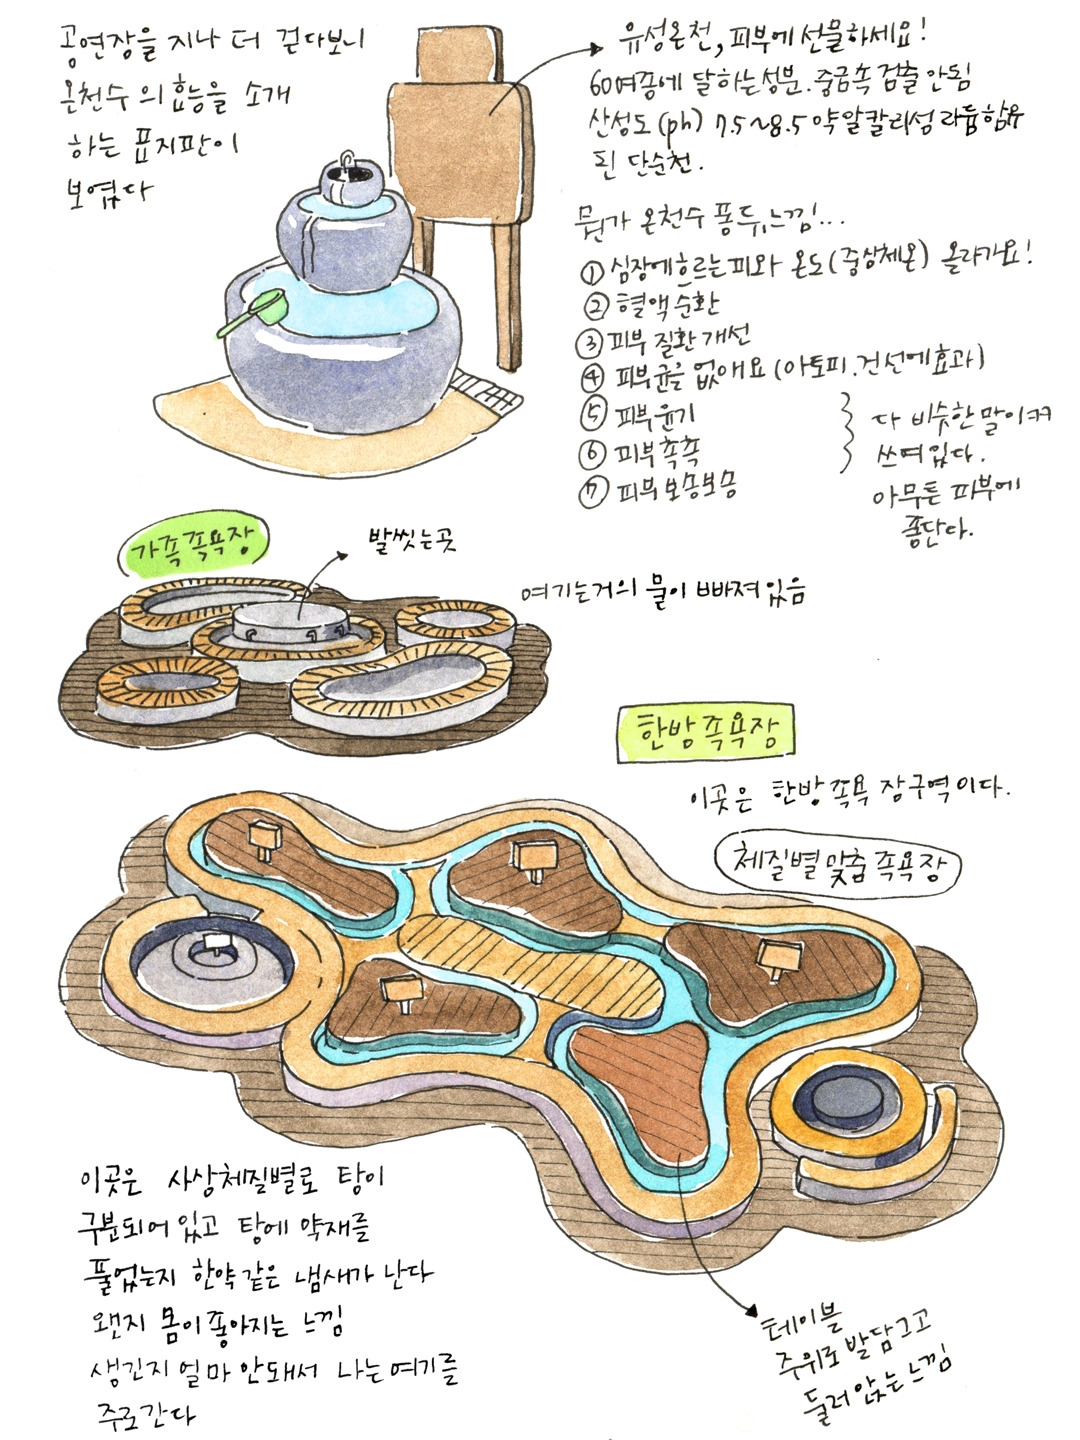 공연장을 지나 더 걷다보니
온천수의 효능을 소개
하는 표지판이
보였다
유성온천, 피부에 선물하세요!
60여종에 달하는 성분. 중금속 검출 안됨
산성도(ph) 7.5~8.5 약알칼리성 라듐함유
된 단순천.
뭔가 온천수 풍듀느낌...
① 심장에 흐르는 피와 온도(중상체온) 올라가요!
② 혈액순환
③ 피부 질환 개선
④ 피부균을 없애요 (아토피.건선에 효과)
⑤ 피부윤기
⑥ 피부촉촉
⑦ 피부보송보송
다 비슷한 말이
쓰여있다.
아무튼 피부에
좋단다.
가족족욕장
발씻는곳
여기는 거의 물이 빠져있음
한방족욕장
이곳은 한방족욕장구역이다.
체질별 맞춤 족욕장
이곳은 사상체질별로 탕이
구분되어 있고 탕에 약재를
풀었는지 한약같은 냄새가 난다
왠지 몸이 좋아지는 느낌
생긴지 얼마 안돼서 나는 여기를
주로간다
테이블
주위로 발 담그고
둘러 앉는 느낌